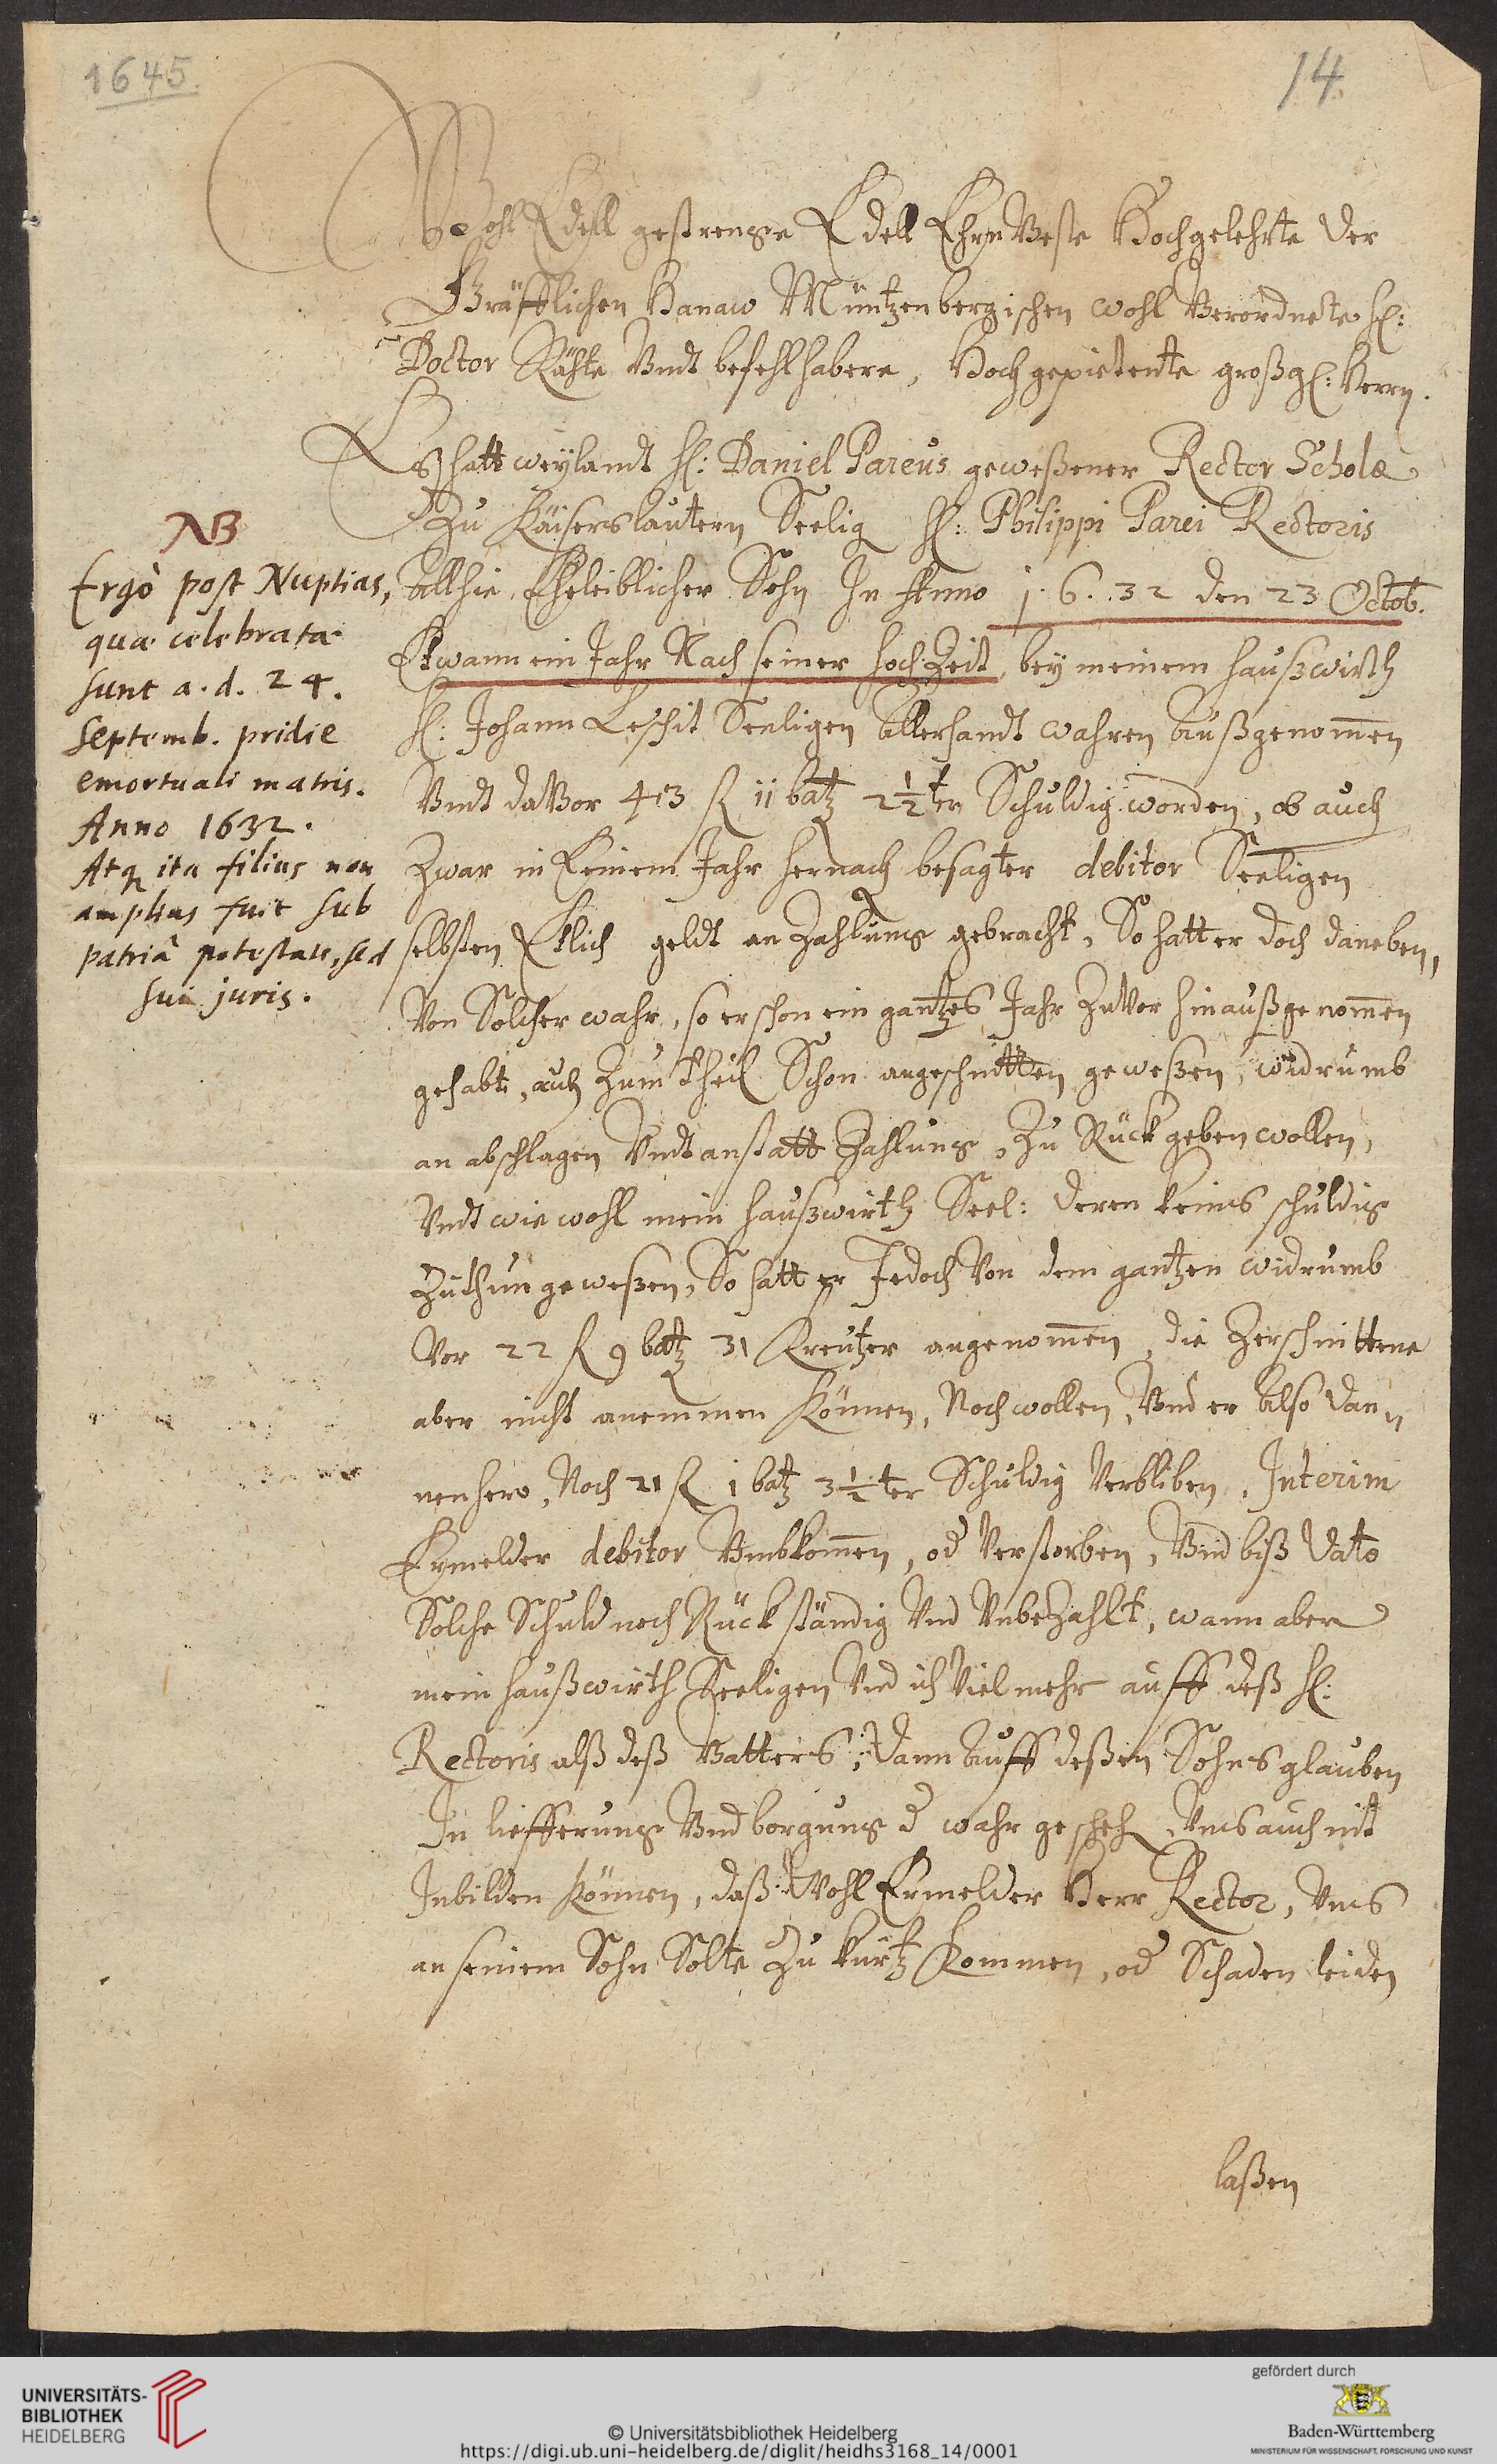 1645.
14.
Wohl Edell gestrenge Edell EhrnVeste Hochgelehrte der
Gräfflichen Hanaw Müntzenbergischen wohl Verordnete H:
Doctor Rähte Vndt befehlhabere, Hochgepietente großg: Herrn.
Es hatt weylandt H: Daniel Pareus geweßener Rector Scholæ
Zu Käiserslautern Seelig H: Philippi Parei Rectoris
allhie Eheleiblicher Sohn In Anno 1.6.32 den 23 Octob.
Etwann ein Jahr Nach seiner hochZeit, bey meinem haußwirth
H: Johann Seeligen allerhandt wahren außgenom̅en
Vndt daVor 43 fl 11 batz 2½ ter Schuldig worden, ob auch
Zwar in Keinem Jahr hernach besagter debitor Seeligen
selbsten Etlich geldt an Zahlung gebracht, So hatt er doch daneben,
Von Solcher wahr, so er schon ein gantzes Jahr ZuVor hinaußgenom̅en
gehabt, auch Zum theil Schon angeschnitten geweßen, widrumb
an abschlagen Vndt anstatt Zahlung, Zu Rück geben wollen,
Vndt wie wohl mein haußwirth Seel: deren keins schuldig
Zuthun geweßen, So hatt er Jedoch Von dem gantzen widrumb
Vor 22 fl 9 batz 31 Kreutzer angenom̅en, die Zerschnittene
aber nicht annemmen Können, Noch wollen, Vnd er also dan„
nenhero, Noch 21 fl 1 batz 3½ ter Schuldig Verbliben, Interim
Ermelder debitor Vmbkom̅en, od Verstorben, Vnd biß dato
Solche Schuld noch Rückständig Vnd VnbeZahlt, wann aber
mein haußwirth Seeligen Vnd ich Viel mehr auff deß H:
Rectoris alß deß Vatters, dann auff deßen Sohns glauben
In liefferung Vnd borgung d wahr gesehen, Vns auch nit
Inbilden Können, daß Wohl Ermelder Herr Rector, Vns
an seinem Sohn Solte Zu kurtz Kommen, od Schaden leiden
laßen
NB
Ergò post Nuptias,
quæ celebratæ
sunt a. d. 24.
Septemb. pridie
emortuali matris.
Anno 1632.
Atq ita filius non
amplius fuit sub
patriâ potestate, sed
sui juris.
UNIVERSITÄTS-
BIBLIOTHEK
HEIDELBERG
© Universitätsbibliothek Heidelberg
https://digi.ub.uni-heidelberg.de/diglit/heidhs3168_14/0001
gefördert durch
Baden-Württemberg
MINISTERIUM FÜR WISSENSCHAFT, FORSCHUNG UND KUNST